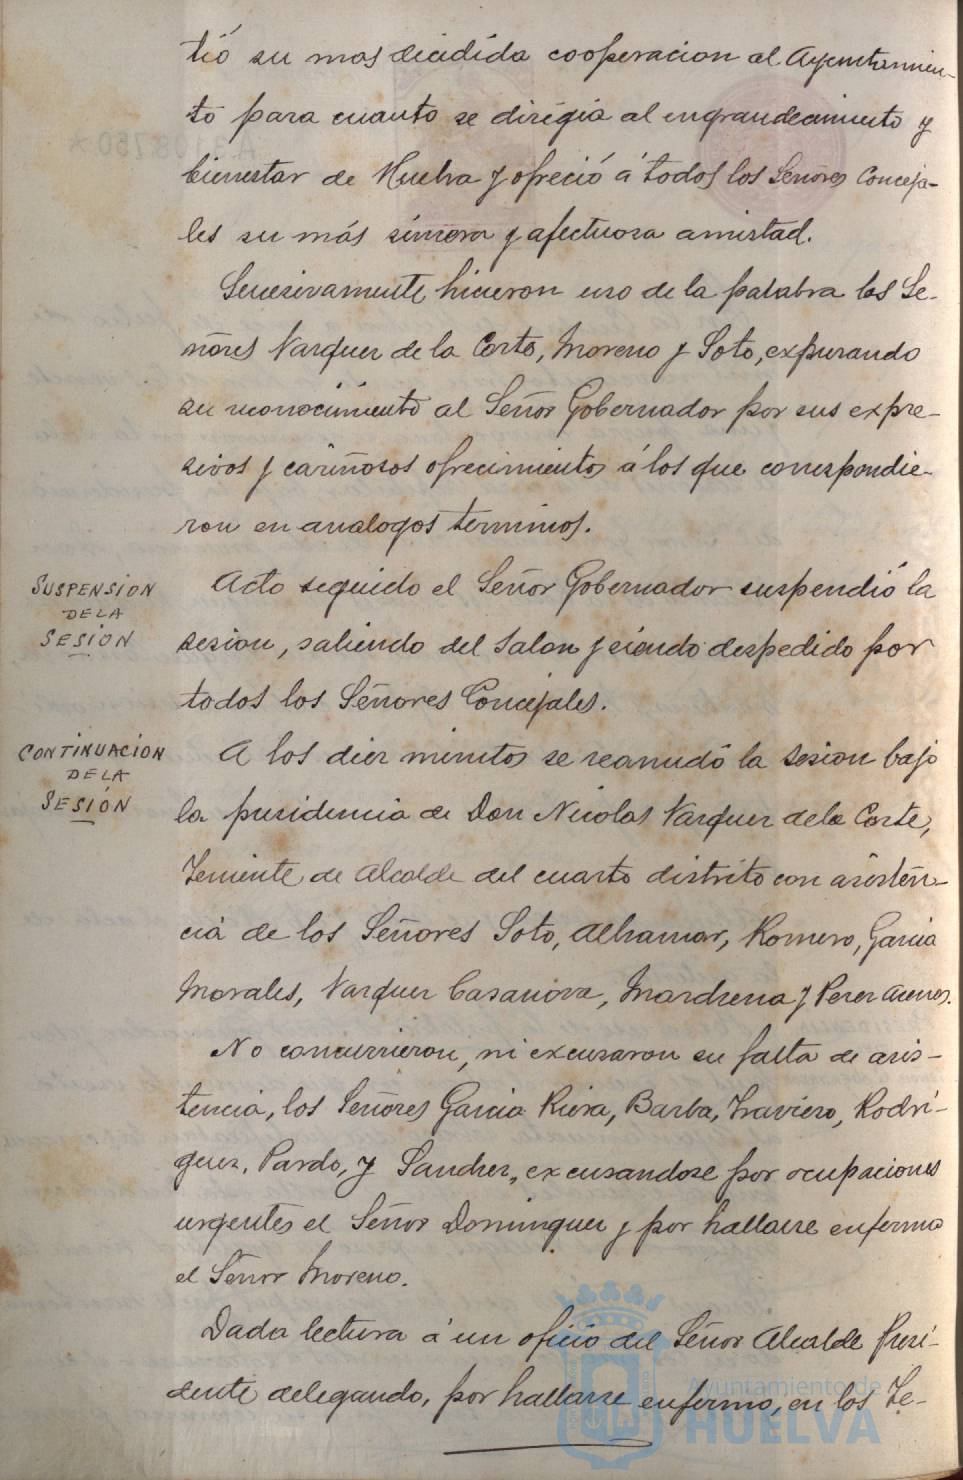 tió su mas decidida cooperacion al Ayuntamien-
to para cuanto se dirigia al engrandecimiento y
bienestar de Huelva y ofreció á todos los Señores Conceja-
les su más sincera y afectuosa amistad.
Sucesivamente hicieron uso de la palabra los Se-
ñores Vazquez de la Corte, Moreno y Soto, expresando
su reconocimiento al Señor Gobernador por sus expre-
sivos y cariñosos ofrecimientos á los que correspondie-
ron en analogos terminos.
SUSPENSION
DE LA
SESION
Acto seguido el Señor Gobernador suspendió la
sesion, saliendo del Salon y siendo despedido por
todos los Señores Concejales.
CONTINUACION
DE LA
SESIÓN
A los diez minutos se reanudó la sesion bajo
la presidencia de Don Nicolas Vazquez de la Corte,
Teniente de Alcalde del cuarto distrito con asisten-
cia de los Señores Soto, Alhamar, Romero, Garcia
Morales, Vazquez Casanova, Mardrena y Perez
No concurrieron, ni excusaron su falta de asis-
tencia, los Señores Garcia Riera, Barba, Traviero, Rodri-
guez, Pardo, y Sanchez, excusandose por ocupaciones
urgentes el Señor Dominguez y por hallarse enfermo
el Señor Moreno.
Dada lectura á un oficio del Señor Alcalde Presi-
dente delegando, por hallarse enfermo, en los Te-
Ayuntamiento de
HUELVA